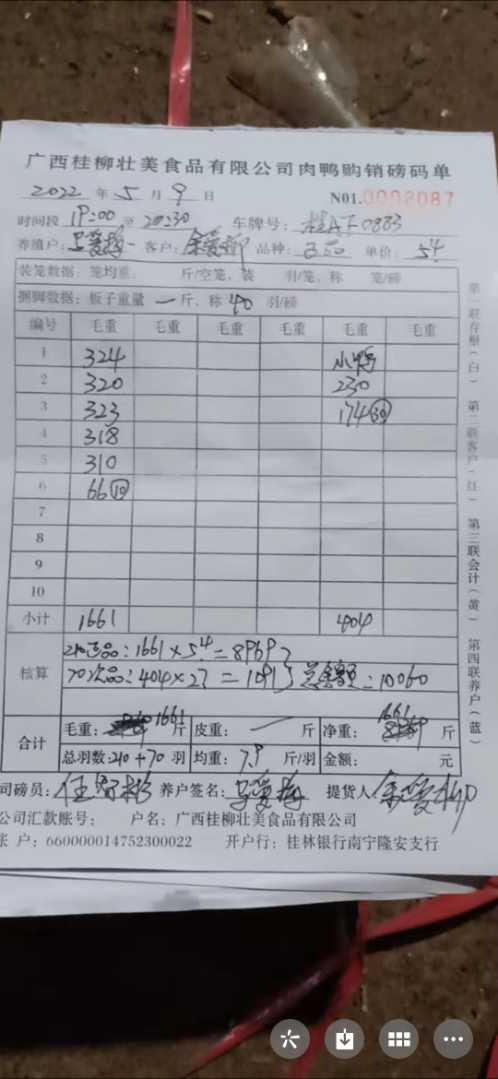 广西桂柳壮美食品有限公司肉鸭购销磅码单
2022 年 5 月 9 日 NO1.0002087
时间段 19:00 至 20:30 车牌号: 0883
养殖户: 客户: 品种: 单价: 5.4
装笼数据: 笼均重, 斤/空笼, 装 羽/笼, 称 笼/磅
捆脚数据: 板子重量 一 斤, 称 40 羽/磅
编号 毛重 毛重 毛重 毛重 毛重 毛重
1 324 小鸭
2 320 230
3 323 174 30
4 318
5 310
6 66 10
7
8
9
10
小计 1661 404
核算
210正品: 1661×5.4=8969
70次品: 404×2.7=1091 总金额: 10060
合计
毛重: 1661 斤 皮重: 一 斤 净重: 1661 斤
总羽数: 210+70 羽 均重: 7.9 斤/羽 金额: 元
司磅员: 养户签名: 提货人
公司汇款账号: 户名: 广西桂柳壮美食品有限公司
账 户: 660000014752300022 开户行: 桂林银行南宁隆安支行
第一联存根(白) 第二联客户(红) 第三联会计(黄) 第四联养户(蓝)